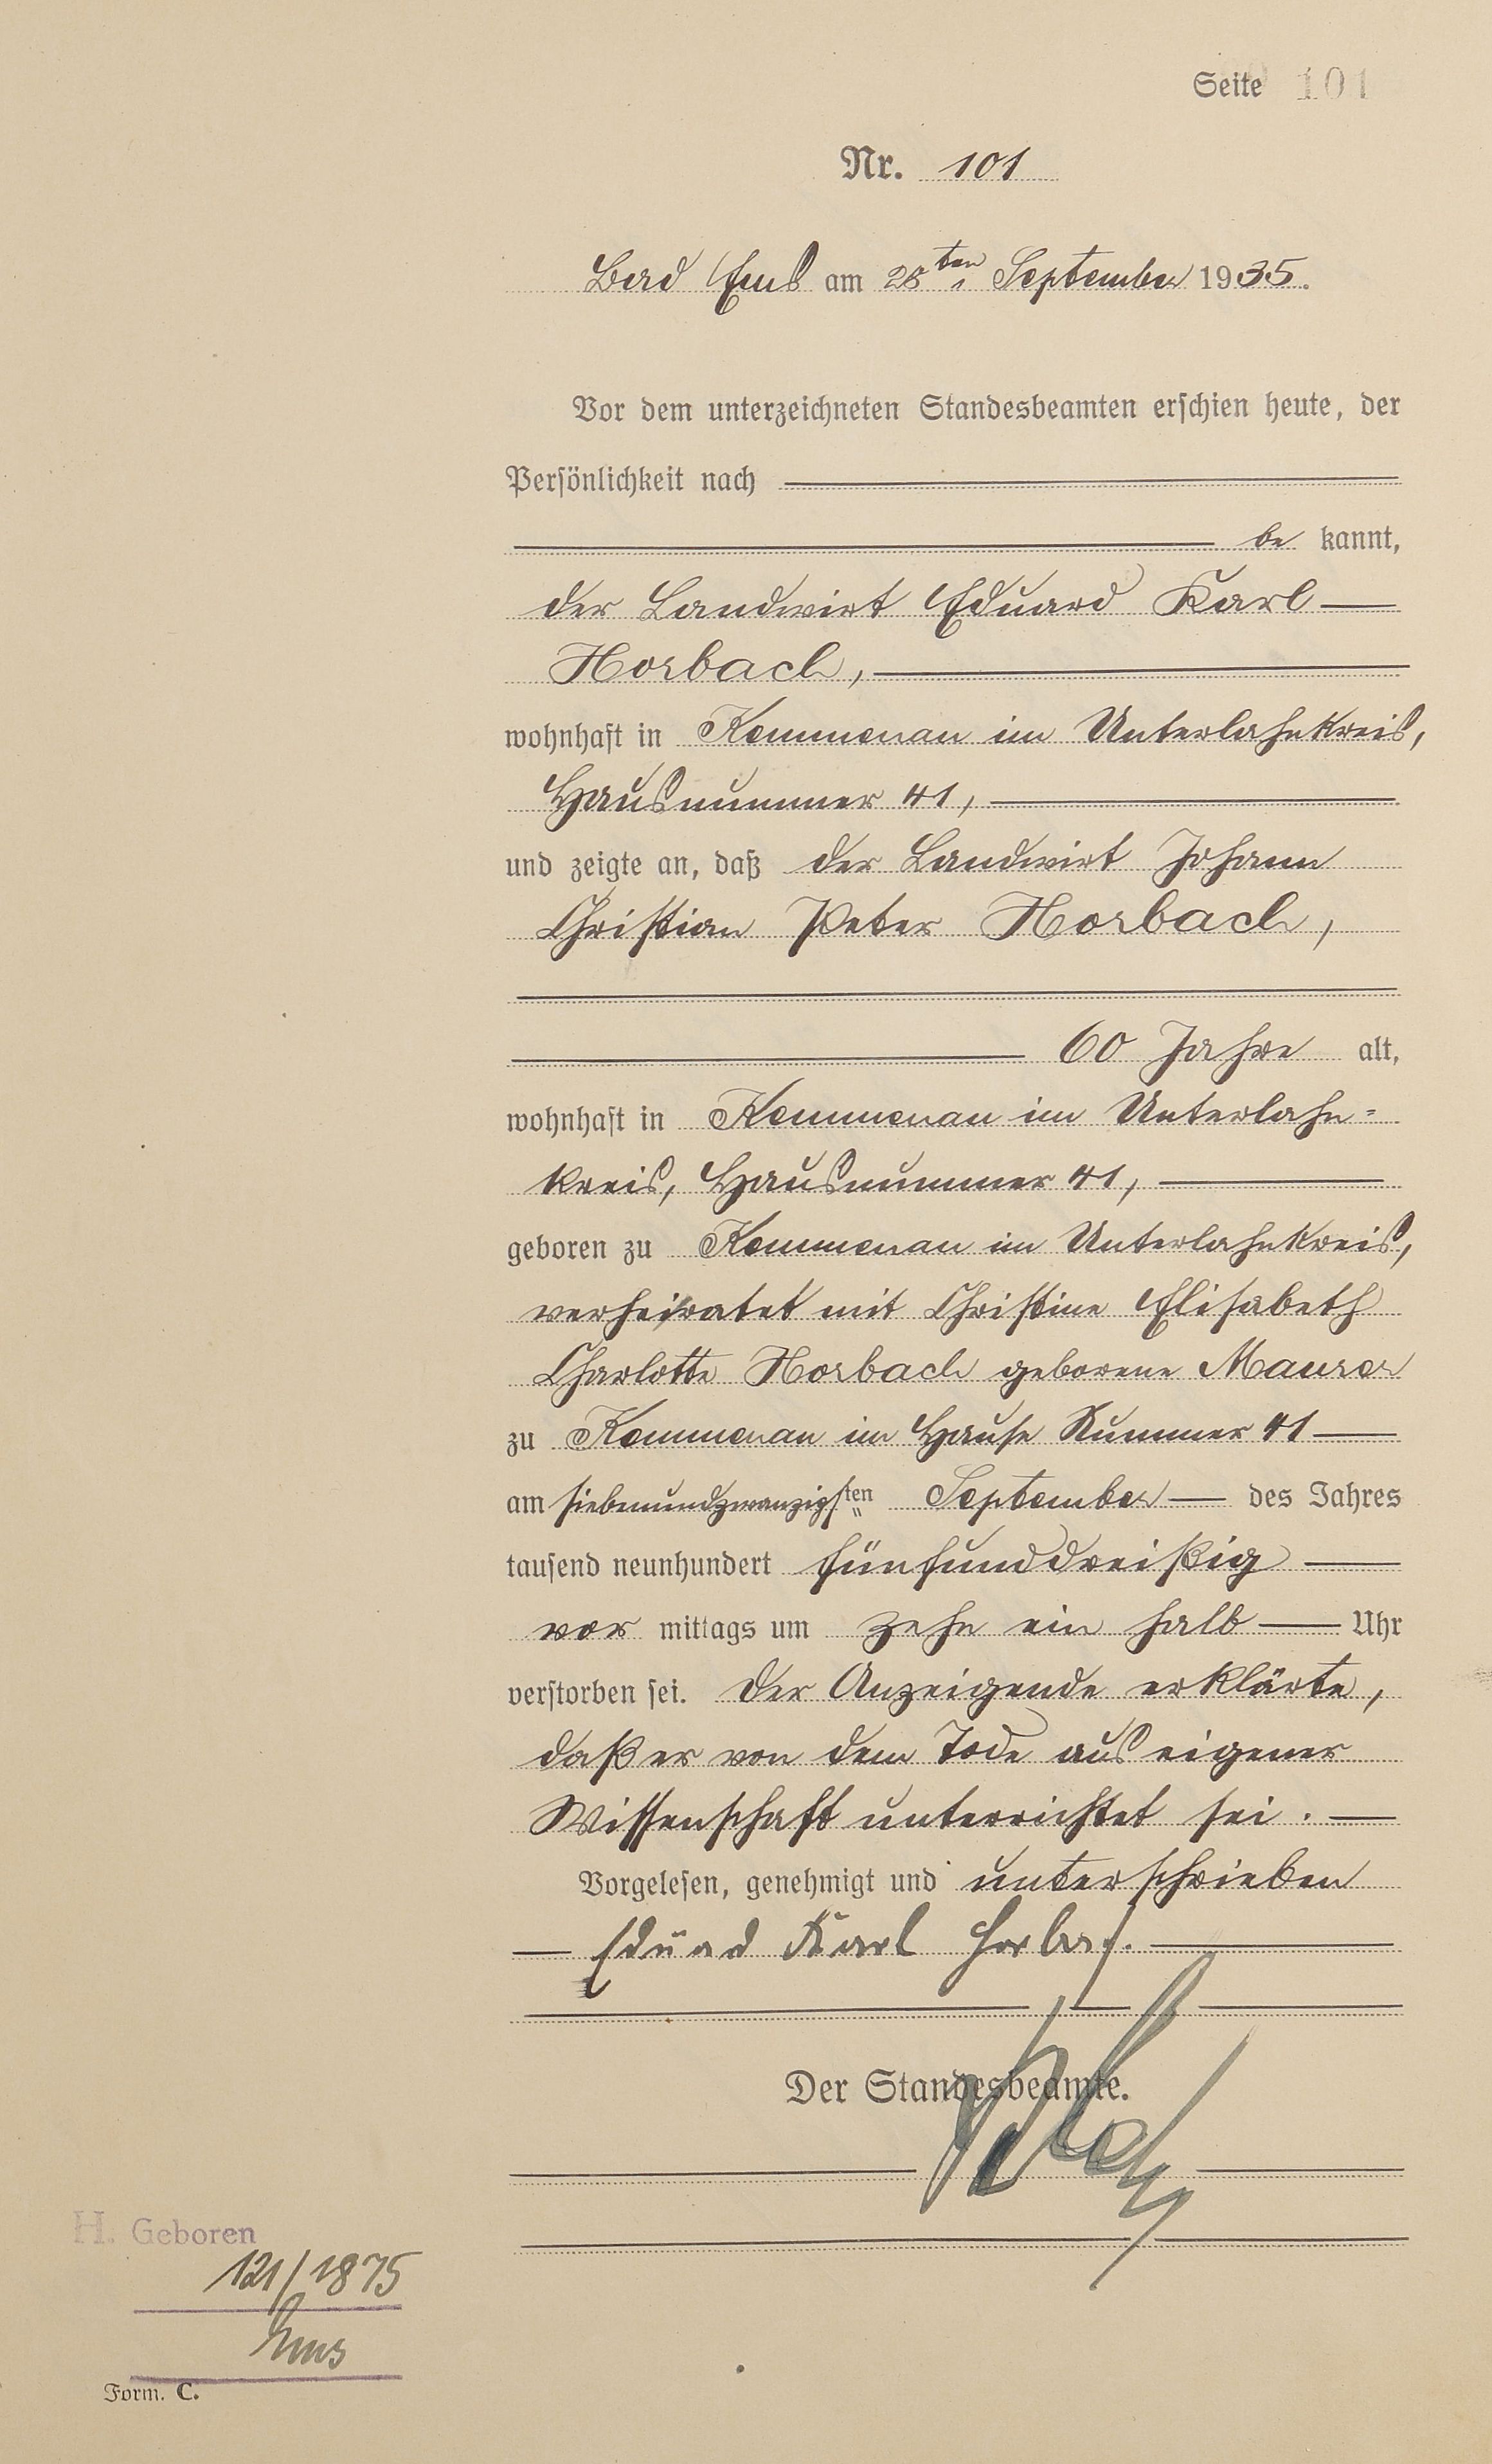 Seite 101
Nr. 101
Bad Ems am 28ten September 1935.
Vor dem unterzeichneten Standesbeamten erschien heute, der
Persönlichkeit nach
be kannt,
der Landwirt Eduard Karl
Horbach,
wohnhaft in Kemmenau im Unterlahnkreis,
Hausnummer 41,
und zeigte an, daß der Landwirt Johann
Christian Peter Horbach,
60 Jahre alt,
wohnhaft in Kemmenau im Unterlahn=
kreis, Hausnummer 41,
geboren zu Kemmenau im Unterlahnkreis,
verheiratet mit Christine Elisabeth
Charlotte Horbach geborene Maurer
zu Kemmenau im Hause Nummer 41
am siebenundzwanzigsten September des Jahres
tausend neunhundert fünfunddreißig
vor mittags um zehn ein halb Uhr
verstorben sei. Der Anzeigende erklärte,
daß er von dem Tode aus eigener
Wissenschaft unterrichtet sei.
Vorgelesen, genehmigt und unterschrieben
Eduard Karl Horbach.
Der Standesbeamte.
H. Geboren
121/1875
Ems
Form. C.